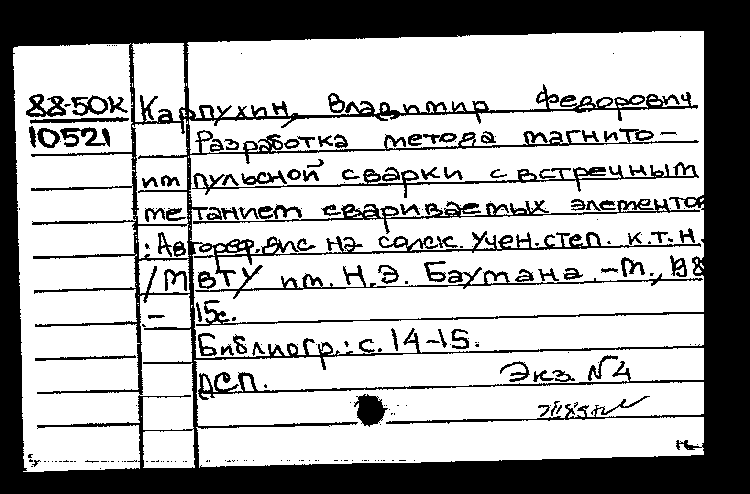 88-50К Карпухин, Владимир Федорович
10521 Разработка метода магнито-
импульсной сварки с встречным
метанием свариваемых элементов
: Автореф. дис на соиск. учен. степ. к.т.н.
/МВТУ им. Н.Э. Баумана. -М., 198
- 15с.
Библиогр.: с. 14-15.
ДСП. Экз. №4